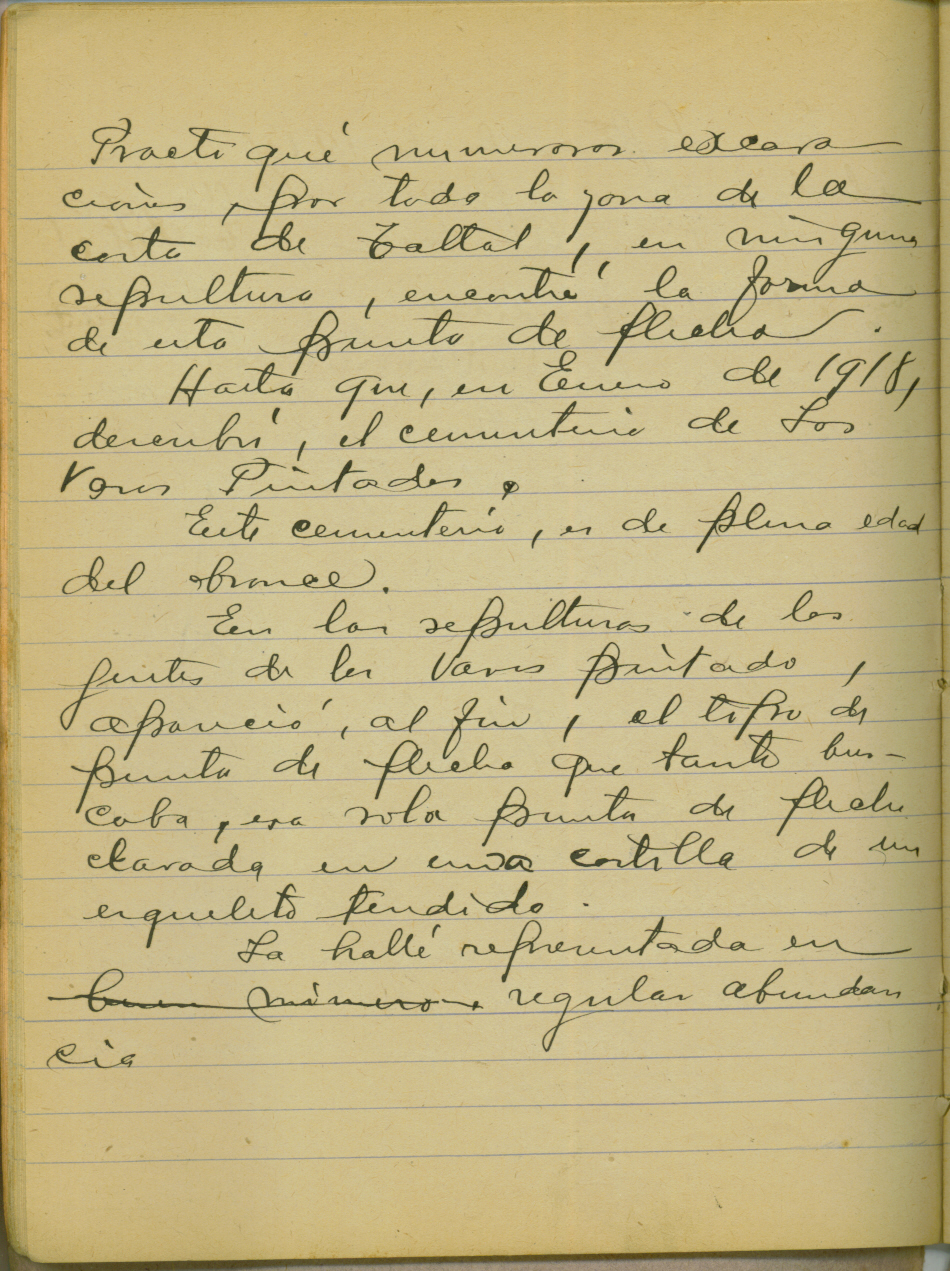 Practiqué numerosos excava
ciones, por toda la zona de la
costa de Taltal, en ninguna
sepultura, encontré la forma
de esta punta de flecha.
Hasta que, en Enero de 1918,
descubrí, el cementerio de Los
Vasos Pintados.
Este cementerio, es de plena edad
del bronce.
En las sepulturas de las
gentes de los Vasos pintado,
apareció, al fin, el tipo de
punta de flecha que tanto bus-
caba, esa sola punta de flecha
clavada en una costilla de un
esqueleto tendido.
La hallé representada en
buen número regular abundan
cia